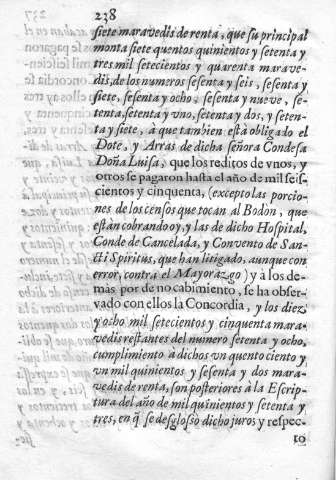 238
siete maravedis de renta, que su principal
monta siete quentos quinientos y setenta y
tres mil setecientos y quarenta marave-
dis, de los numeros sesenta y seis, sesenta y
siete, sesenta y ocho, sesenta y nueve, se-
tenta, setenta y vno, setenta y dos, y seten-
ta y siete, à que tambien està obligado el
Dote, y Arras de dicha señora Condesa
Doña Luisa, que los reditos de vnos, y
otros se pagaron hasta el año de mil seis-
cientos y cinquenta, (excepto las porcio-
nes de los censos que tocan al Bodon, que
estàn cobrando oy, y las de dicho Hospital,
Conde de Cancelada, y Convento de San-
cti Spiritus, que han litigado, aunque con
error, contra el Mayorazgo) y à los de-
màs por de no cabimiento, se ha obser-
vado con ellos la Concordia, y los diez
y ocho mil setecientos y cinquenta mara-
vedis restantes del numero setenta y ocho,
cumplimiento à dichos vn quento ciento y
vn mil quinientos y sesenta y dos marave-
dis de renta, son posteriores à la Escrip-
tura del año de mil quinientos y setenta y
tres, en q̃ se desglosò dicho juro, y respec-
to